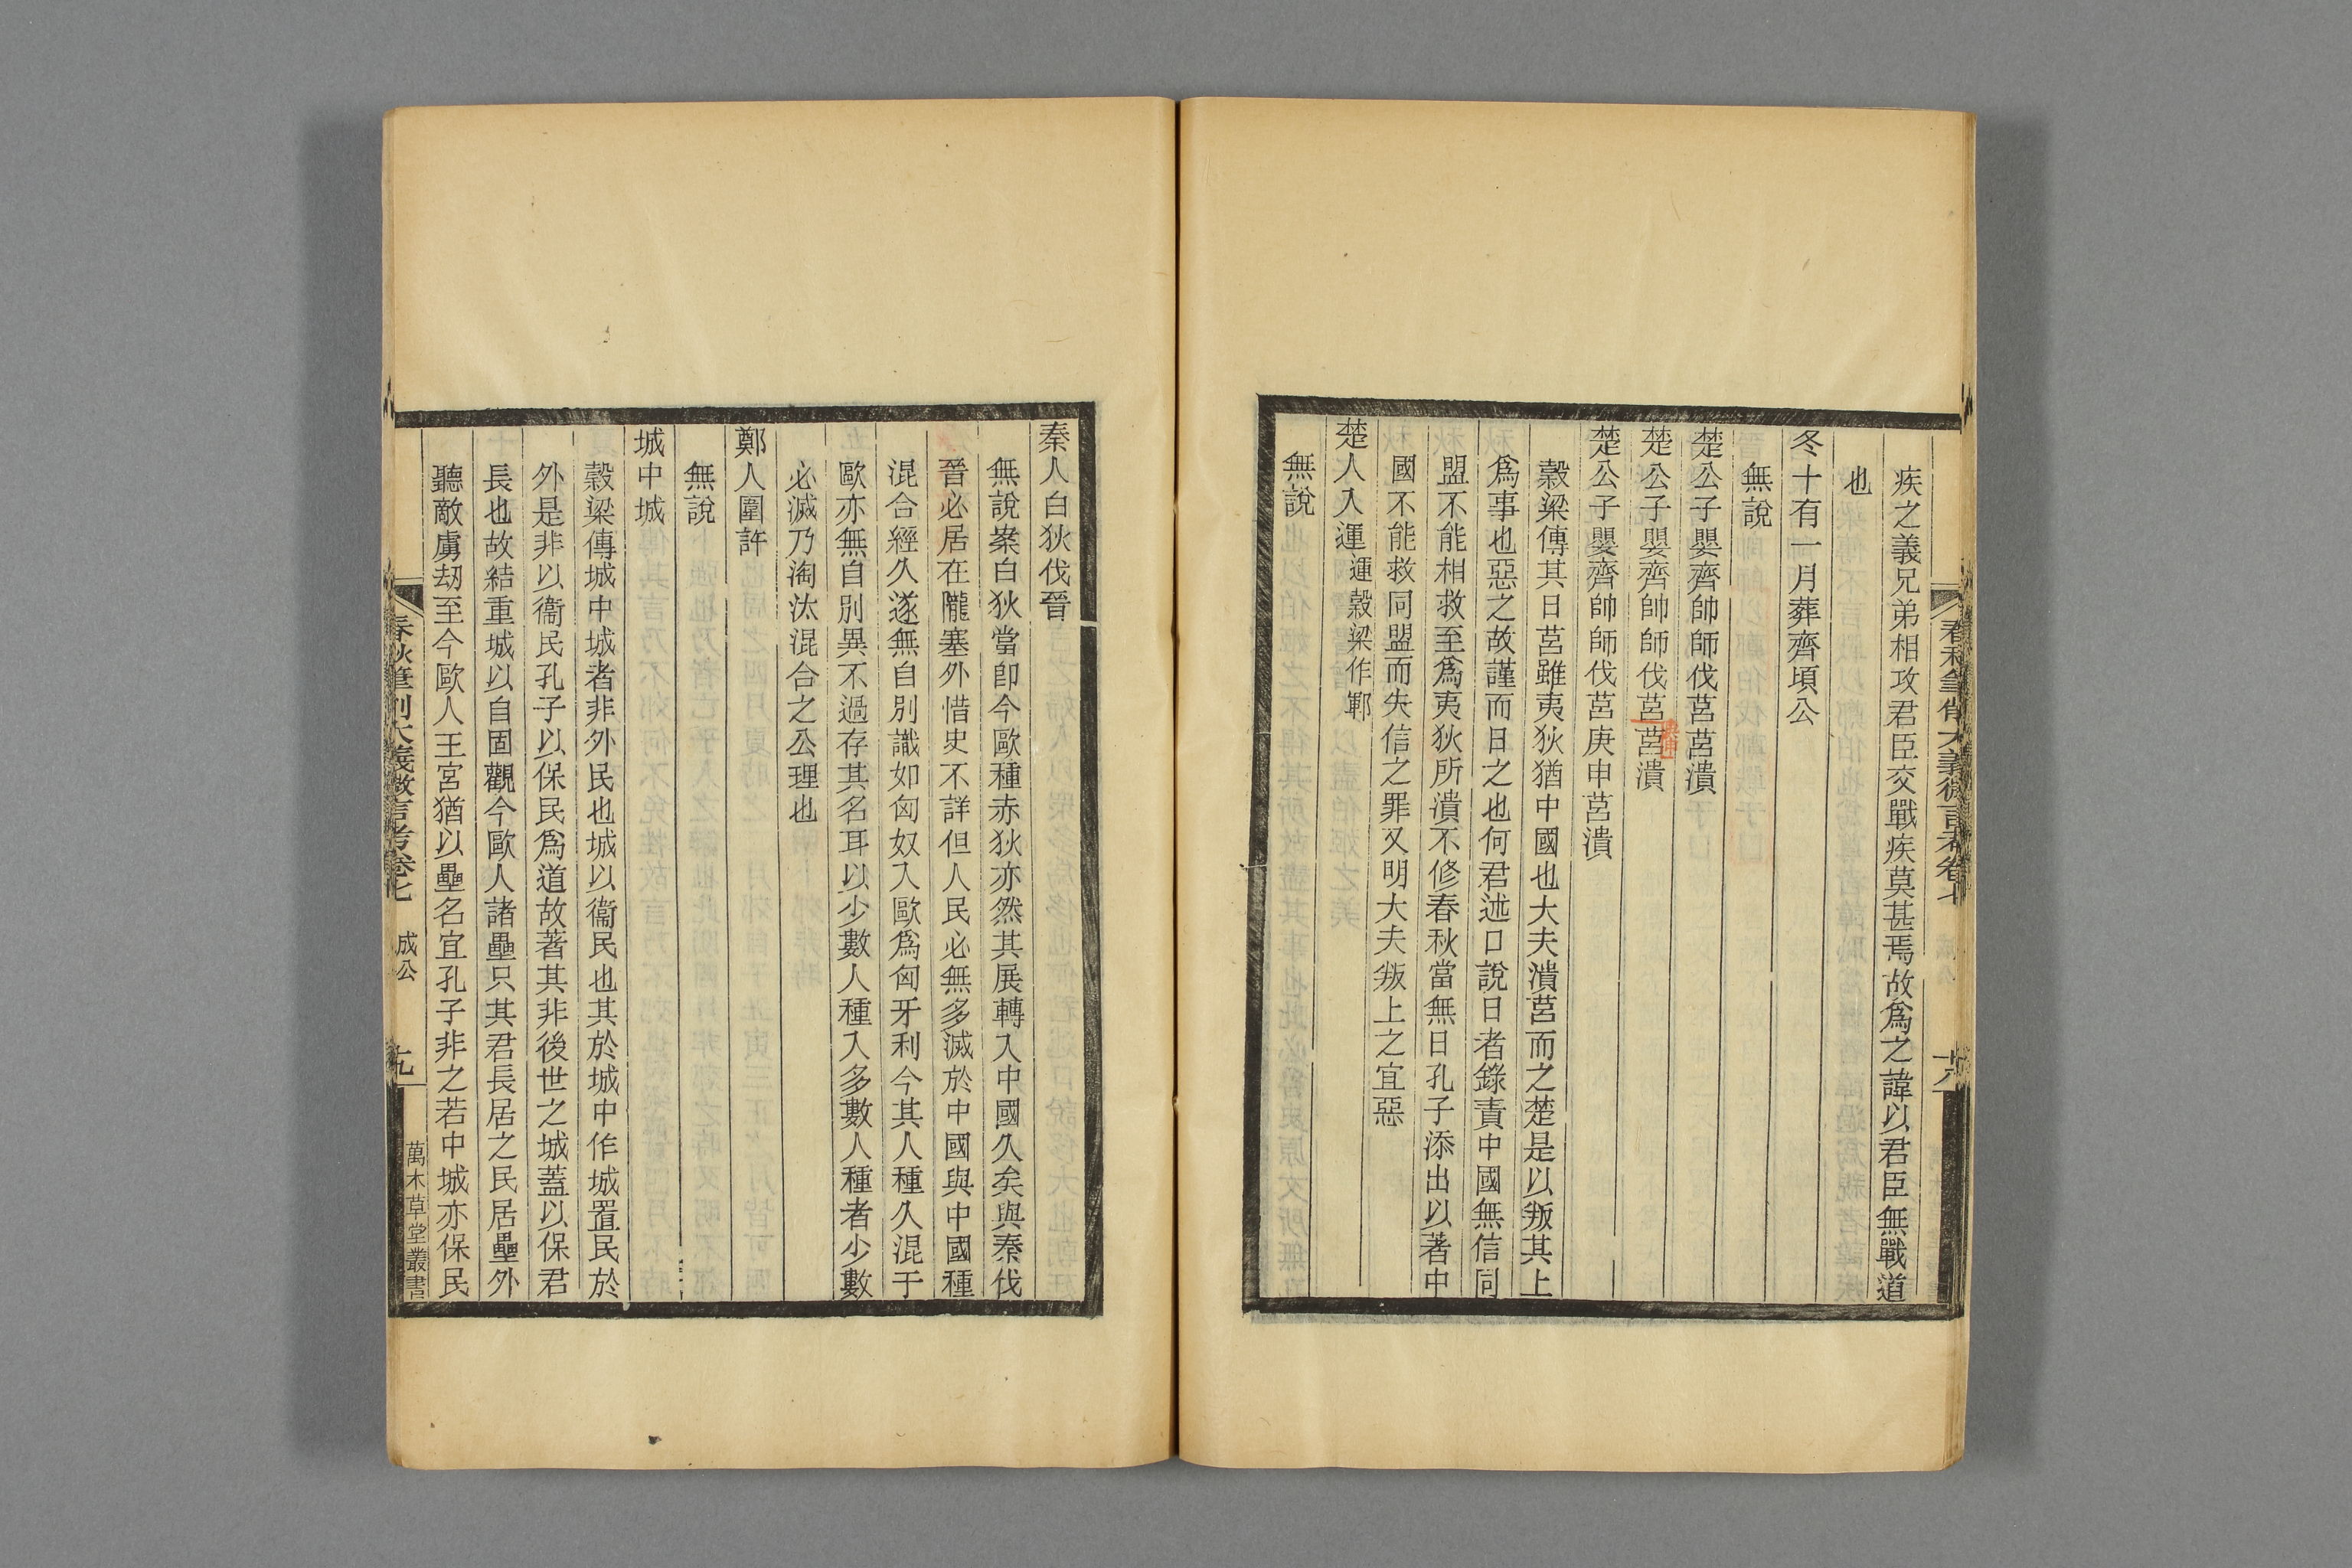 疾之義兄弟相攻君臣交戰疾莫甚焉故爲之諱以君臣無戰道
也
冬十有一月葬齊頃公
無說
楚公子嬰齊帥師伐莒莒潰
楚公子嬰齊帥師伐莒莒潰
楚公子嬰齊帥師伐莒庚申莒潰
穀梁傳其日莒雖夷狄猶中國也大夫潰莒而之楚是以叛其上
爲事也惡之故謹而日之也何君述口說日者錄責中國無信同
盟不能相救至爲夷狄所潰不修春秋當無日孔子添出以著中
國不能救同盟而失信之罪又明大夫叛上之宜惡
楚人入運運穀梁作鄆
無說
秦人白狄伐晉
無說案白狄當卽今歐種赤狄亦然其展轉入中國久矣與秦伐
晉必居在隴塞外惜史不詳但人民必無多滅於中國與中國種
混合經久遂無自別識如匈奴入歐爲匈牙利今其人種久混于
歐亦無自別異不過存其名耳以少數人種入多數人種者少數
必滅乃淘汰混合之公理也
鄭人圍許
無說
城中城
穀梁傳城中城者非外民也城以衞民也其於城中作城置民於
外是非以衞民孔子以保民爲道故著其非後世之城蓋以保君
長也故結重城以自固觀今歐人諸壘只其君長居之民居壘外
聽敵虜刼至今歐人王宮猶以壘名宜孔子非之若中城亦保民
春秋筆削大義微言考卷七 成公 十九
萬木草堂叢書